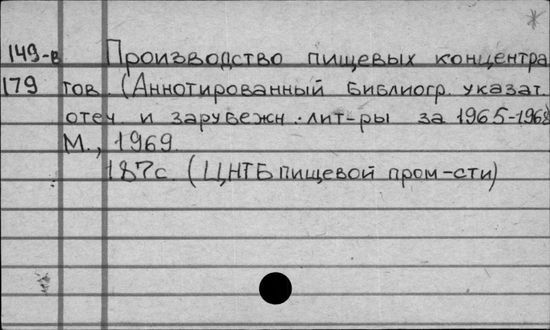 149-в Производство пищевых концентра
179 тов. (Аннотированный библиогр. указат.
отеч. и зарубежн. лит-ры за 1965-1968
М., 1969.
187с. (ЦНТБ пищевой пром-сти)